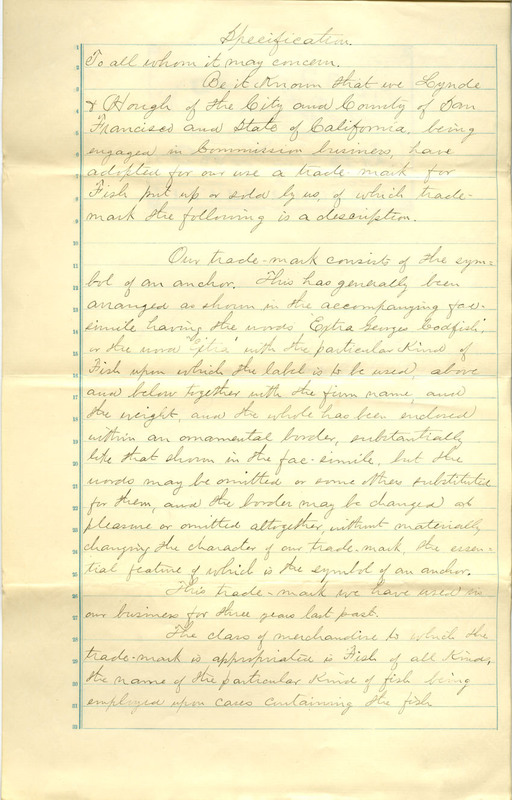 Specification.
To all whom it may concern.
Be it Known that we Lynde
& Hough of the City and County of San
Francisco and State of California, being
engaged in Commission business, have
adopted for our use a trade-mark for
Fish put up or sold by us, of which trade-
mark the following is a description.
Our trade-mark consists of the sym-
bol of an anchor. This has generally been
arranged as shown in the accompanying fac-
simile having the words "Extra Georges Codfish",
or the word "Extra" with the particular Kind of
Fish upon which the label is to be used, above
and below together with the firm name, and
the weight, and the whole has been enclosed
within an ornamental border, substantially
like that shown in the fac-simile, but the
words may be omitted or some others substituted
for them, and the border may be changed at
pleasure or omitted altogether, without materially
changing the character of our trade-mark, the essen-
tial feature of which is the symbol of an anchor.
This trade-mark we have used in
our business for three years last past.
The class of merchandise to which the
trade-mark is appropriated is Fish of all Kinds,
the name of the particular Kind of fish being
employed upon cases containing the fish